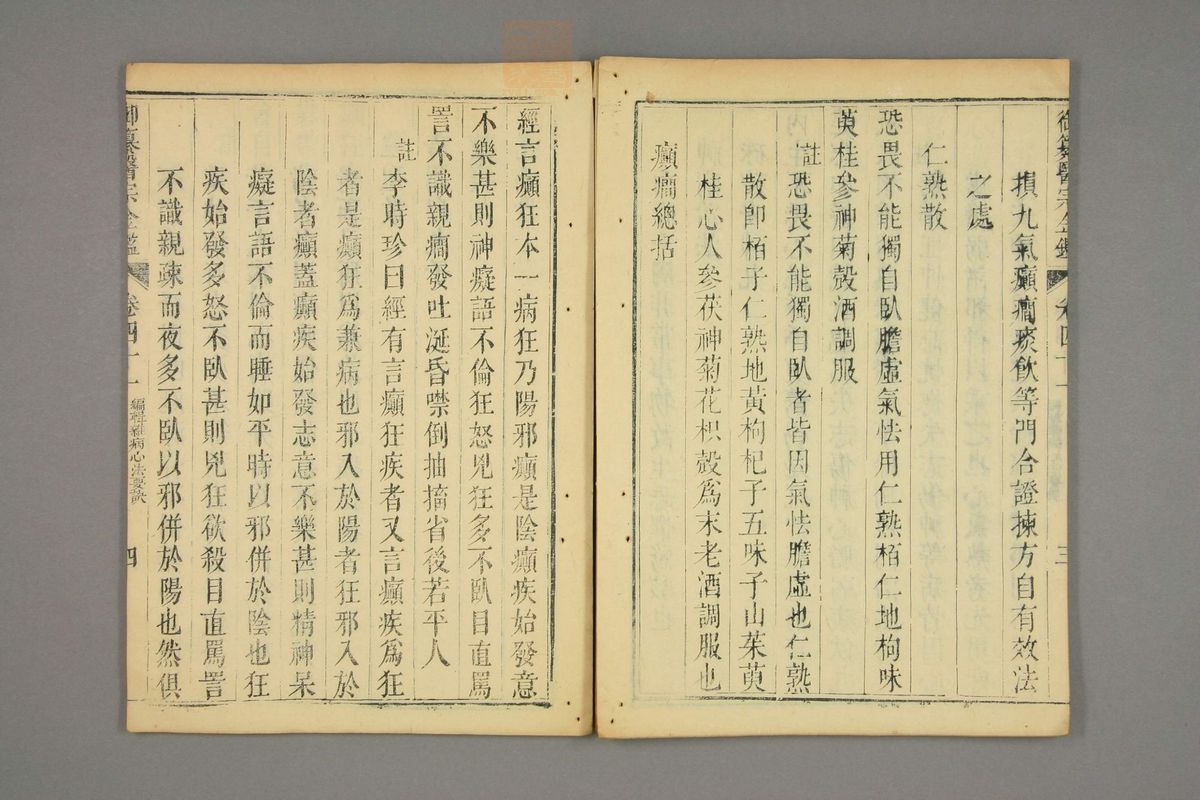 御纂醫宗金鑑 卷四十一 三
損九氣癲癎痰飲等門合證揀方自有效法
之處
仁熟散
恐畏不能獨自臥膽虛氣怯用仁熟柏仁地枸味
萸桂參神菊殼酒調服
註 恐畏不能獨自臥者皆因氣怯膽虛也仁熟
散卽栢子仁熟地黃枸杞子五味子山茱萸
桂心人參茯神菊花枳殼爲末老酒調服也
癲癎總括
經言癲狂本一病狂乃陽邪癲是陰癲疾始發意
不樂甚則神癡語不倫狂怒兇狂多不臥目直罵
詈不識親癎發吐涎昏噤倒抽搐省後若平人
註 李時珍曰經有言癲狂疾者又言癲疾爲狂
者是癲狂爲兼病也邪入於陽者狂邪入於
陰者癲蓋癲疾始發志意不樂甚則精神呆
癡言語不倫而睡如平時以邪併於陰也狂
疾始發多怒不臥甚則兇狂欲殺目直罵詈
不識親疎而夜多不臥以邪併於陽也然俱
御纂醫宗金鑑 卷四十一 編輯雜病心法要訣 四